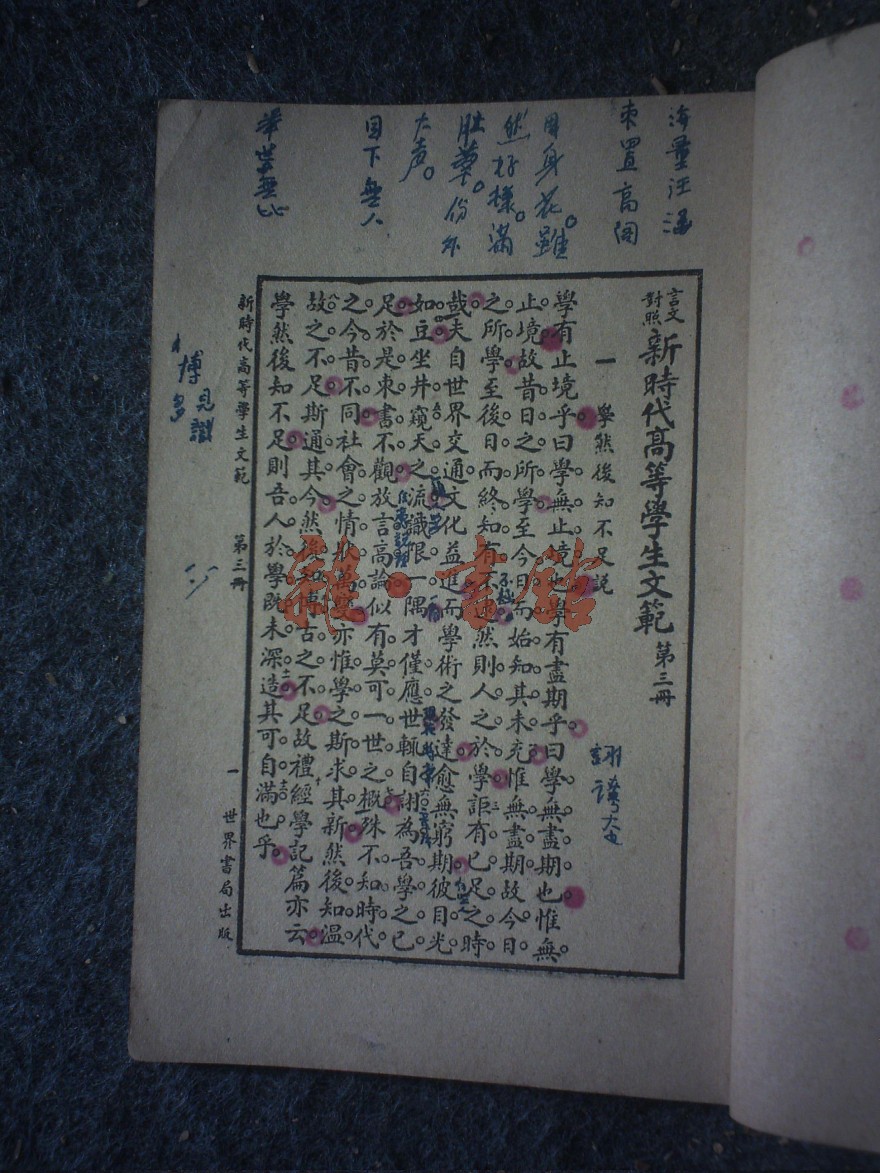 海量汪涵
束置高閣
周身花。雖
然好樣。滿
肚草。份外
大声。
目下無人
舉世無比
言文
對照
新時代高等學生文範 第三冊
一 學然後知不足說
學有止境乎。曰學無止境也。學有盡期乎。曰學無盡期也。惟無
止境。故昔日之所學。至今日而始知其未充。惟無盡期。故今日
之所學。至後日而終知有不逮。然則人之於學。詎有已足之時
哉。夫自世界交通。文化益進。而學術之發達。愈無窮期。彼目光
如豆。坐井窺天之流。識限一隅。才僅應世。輒自詡為吾學之已
足。於是束書不觀。放言高論。似有莫可一世之概。殊不知時代
之今昔不同。社會之情狀萬變。亦惟學之斯求其新。然後知溫
故之不足。斯通其今。然後知博古之不足。故禮經學記篇亦云。
學然後知不足。則吾人於學。既未深造。其可自滿也乎。
詡誇大也
新時代高等學生文範 第三冊 一 世界書局出版
博
多
見識
雜·書館